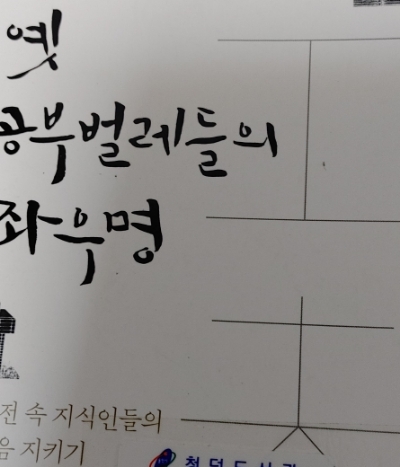 옛
공부벌레들의
좌우명
전 속 지식인들의
음 지키기